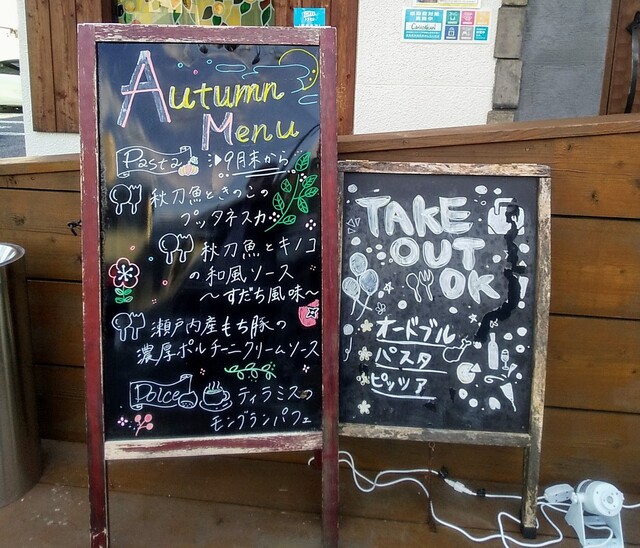 Autumn
Menu
Pasta
9月末から
秋刀魚ときのこの
プッタネスカ
秋刀魚とキノコ
の和風ソース
〜すだち風味〜
瀬戸内産もち豚の
濃厚ポルチーニクリームソース
Dolce
ティラミスの
モンブランパフェ
TAKE
OUT
OK
オードブル
パスタ
ピッツア